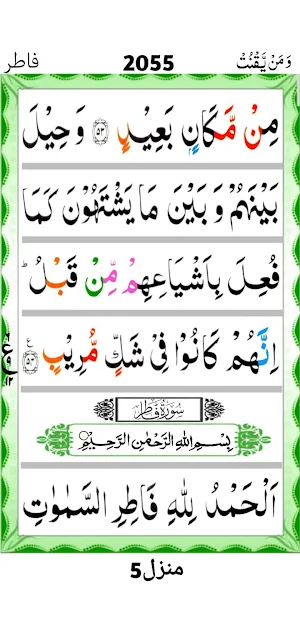 وَمَنْ يَّقْنُتْ 2055 فاطر
مِنْ مَّكَانٍۭ بَعِيْدٍ ﴿٥٣﴾ وَ حِيْلَ
بَيْنَهُمْ وَ بَيْنَ مَا يَشْتَهُوْنَ كَمَا
فُعِلَ بِاَشْيَاعِهِمْ مِّنْ قَبْلُ ؕ
اِنَّهُمْ كَانُوْا فِيْ شَكٍّ مُّرِيْبٍ ﴿٥٤﴾
سُوْرَةُ فَاطِر
بِسْمِ اللّٰهِ الرَّحْمٰنِ الرَّحِيْمِ
اَلْحَمْدُ لِلّٰهِ فَاطِرِ السَّمٰوٰتِ
منزل5